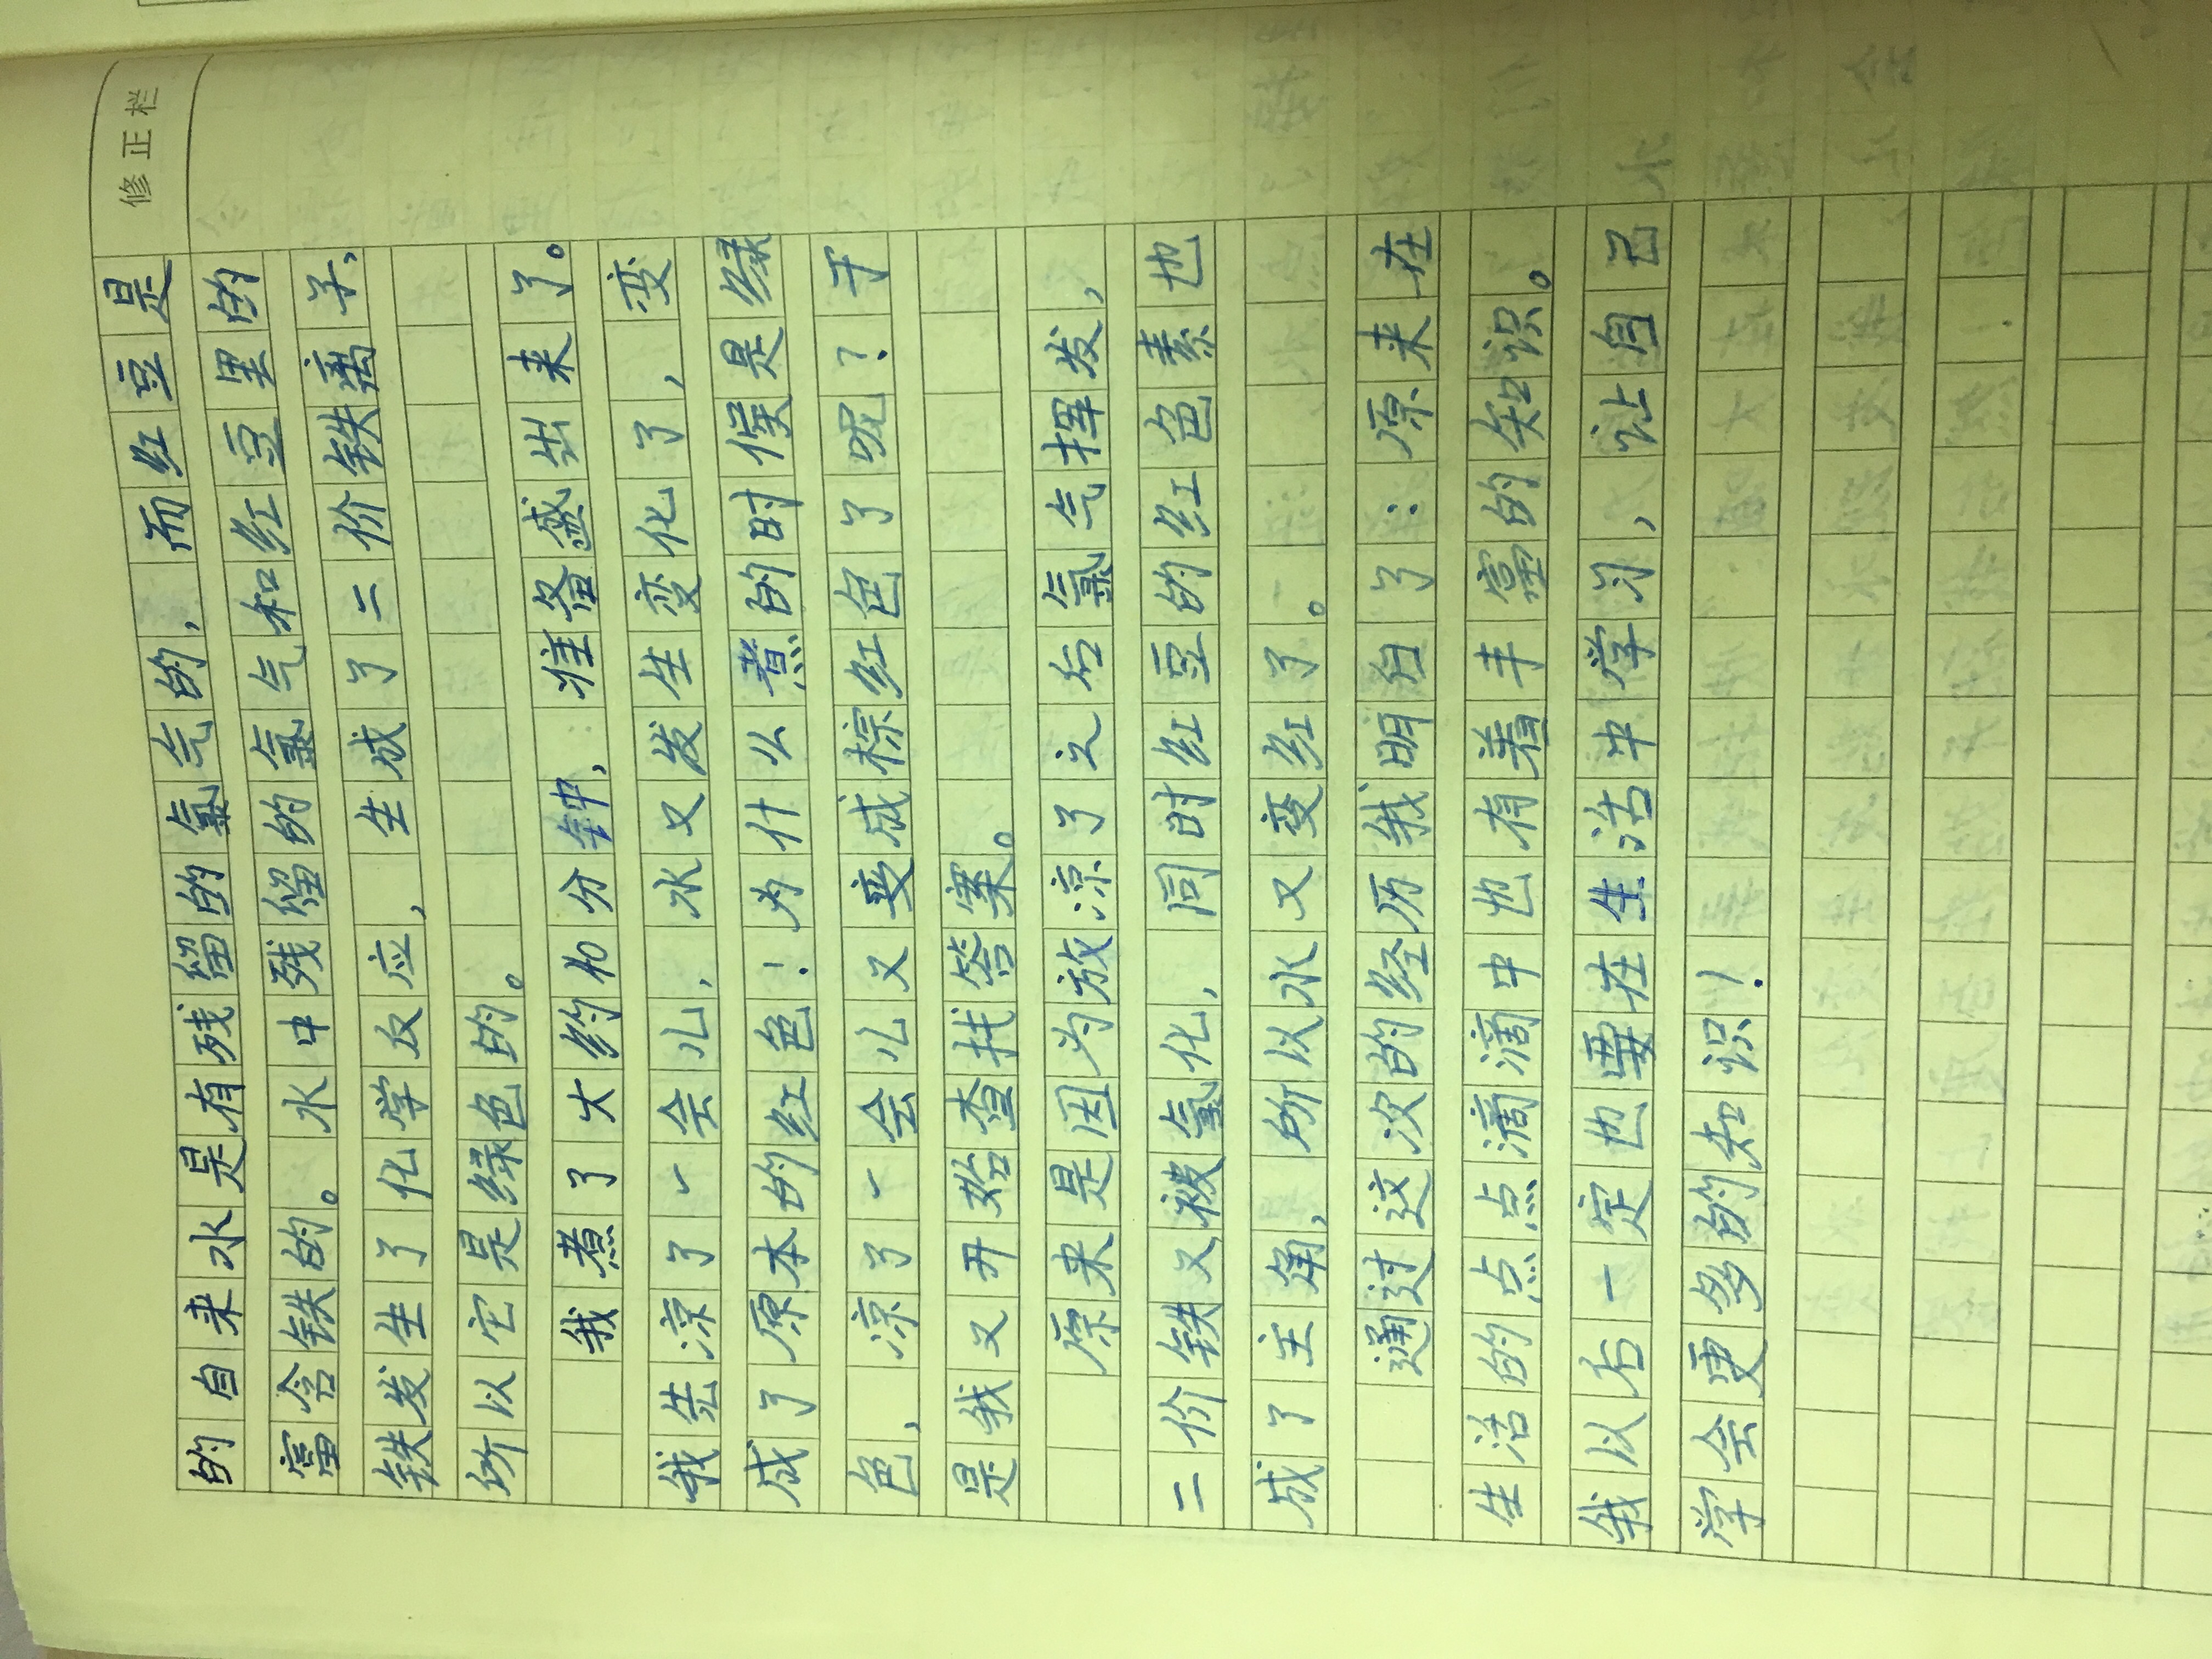 修正栏
的自来水是有残留的氯气的，而红豆是
富含铁的。水中残留的氯气和红豆里的
铁发生了化学反应，生成了二价铁离子，
所以它是绿色的。
我煮了大约10分钟，准备盛出来了。
我先凉了一会儿，水又发生变化了，变
成了原本的红色！为什么煮的时候是绿
色，凉了一会儿又变成棕红色了呢？于
是我又开始查找答案。
原来是因为放凉了之后氯气挥发，
二价铁又被氧化，同时红豆的红色素也
成了主角，所以水又变红了。
通过这次的经历我明白了：原来在
生活的点点滴滴中也有着丰富的知识。
我以后一定也要在生活中学习，让自己
学会更多的知识！